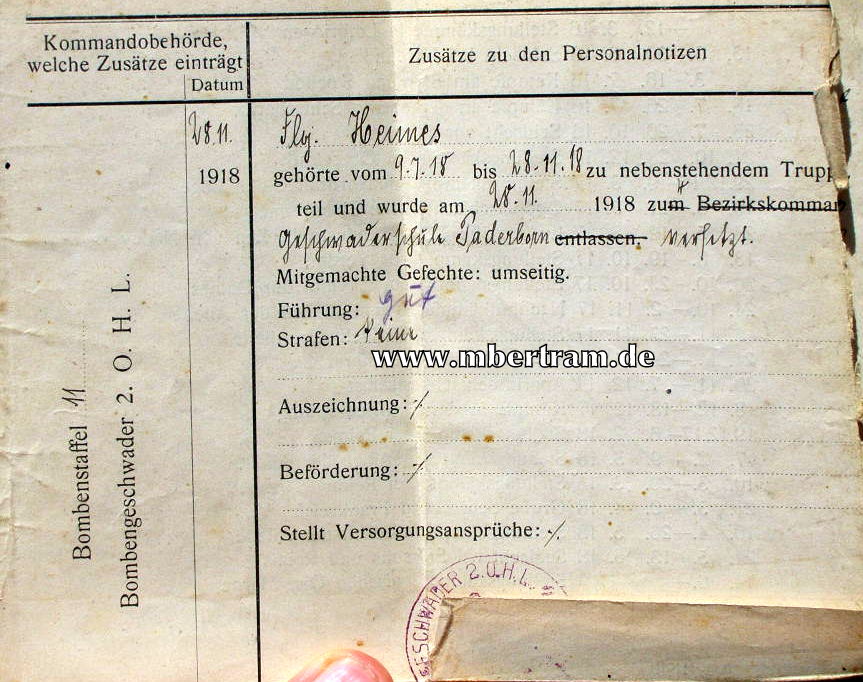 Kommandobehörde,
welche Zusätze einträgt
Datum
Zusätze zu den Personalnotizen
28.11.
1918
Bombenstaffel 11
Bombengeschwader 2. O. H. L.
Flg. Heimes
gehörte vom 9.7.18 bis 28.11.18 zu nebenstehendem Trupp
teil und wurde am 28.11. 1918 zum Bezirkskomman
Geschwaderschule Paderborn entlassen, versetzt.
Mitgemachte Gefechte: umseitig.
Führung: gut
Strafen: keine
www.mbertram.de
Auszeichnung: ⁒
Beförderung: ⁒
Stellt Versorgungsansprüche: ⁒
GESCHWADER 2.O.H.L.